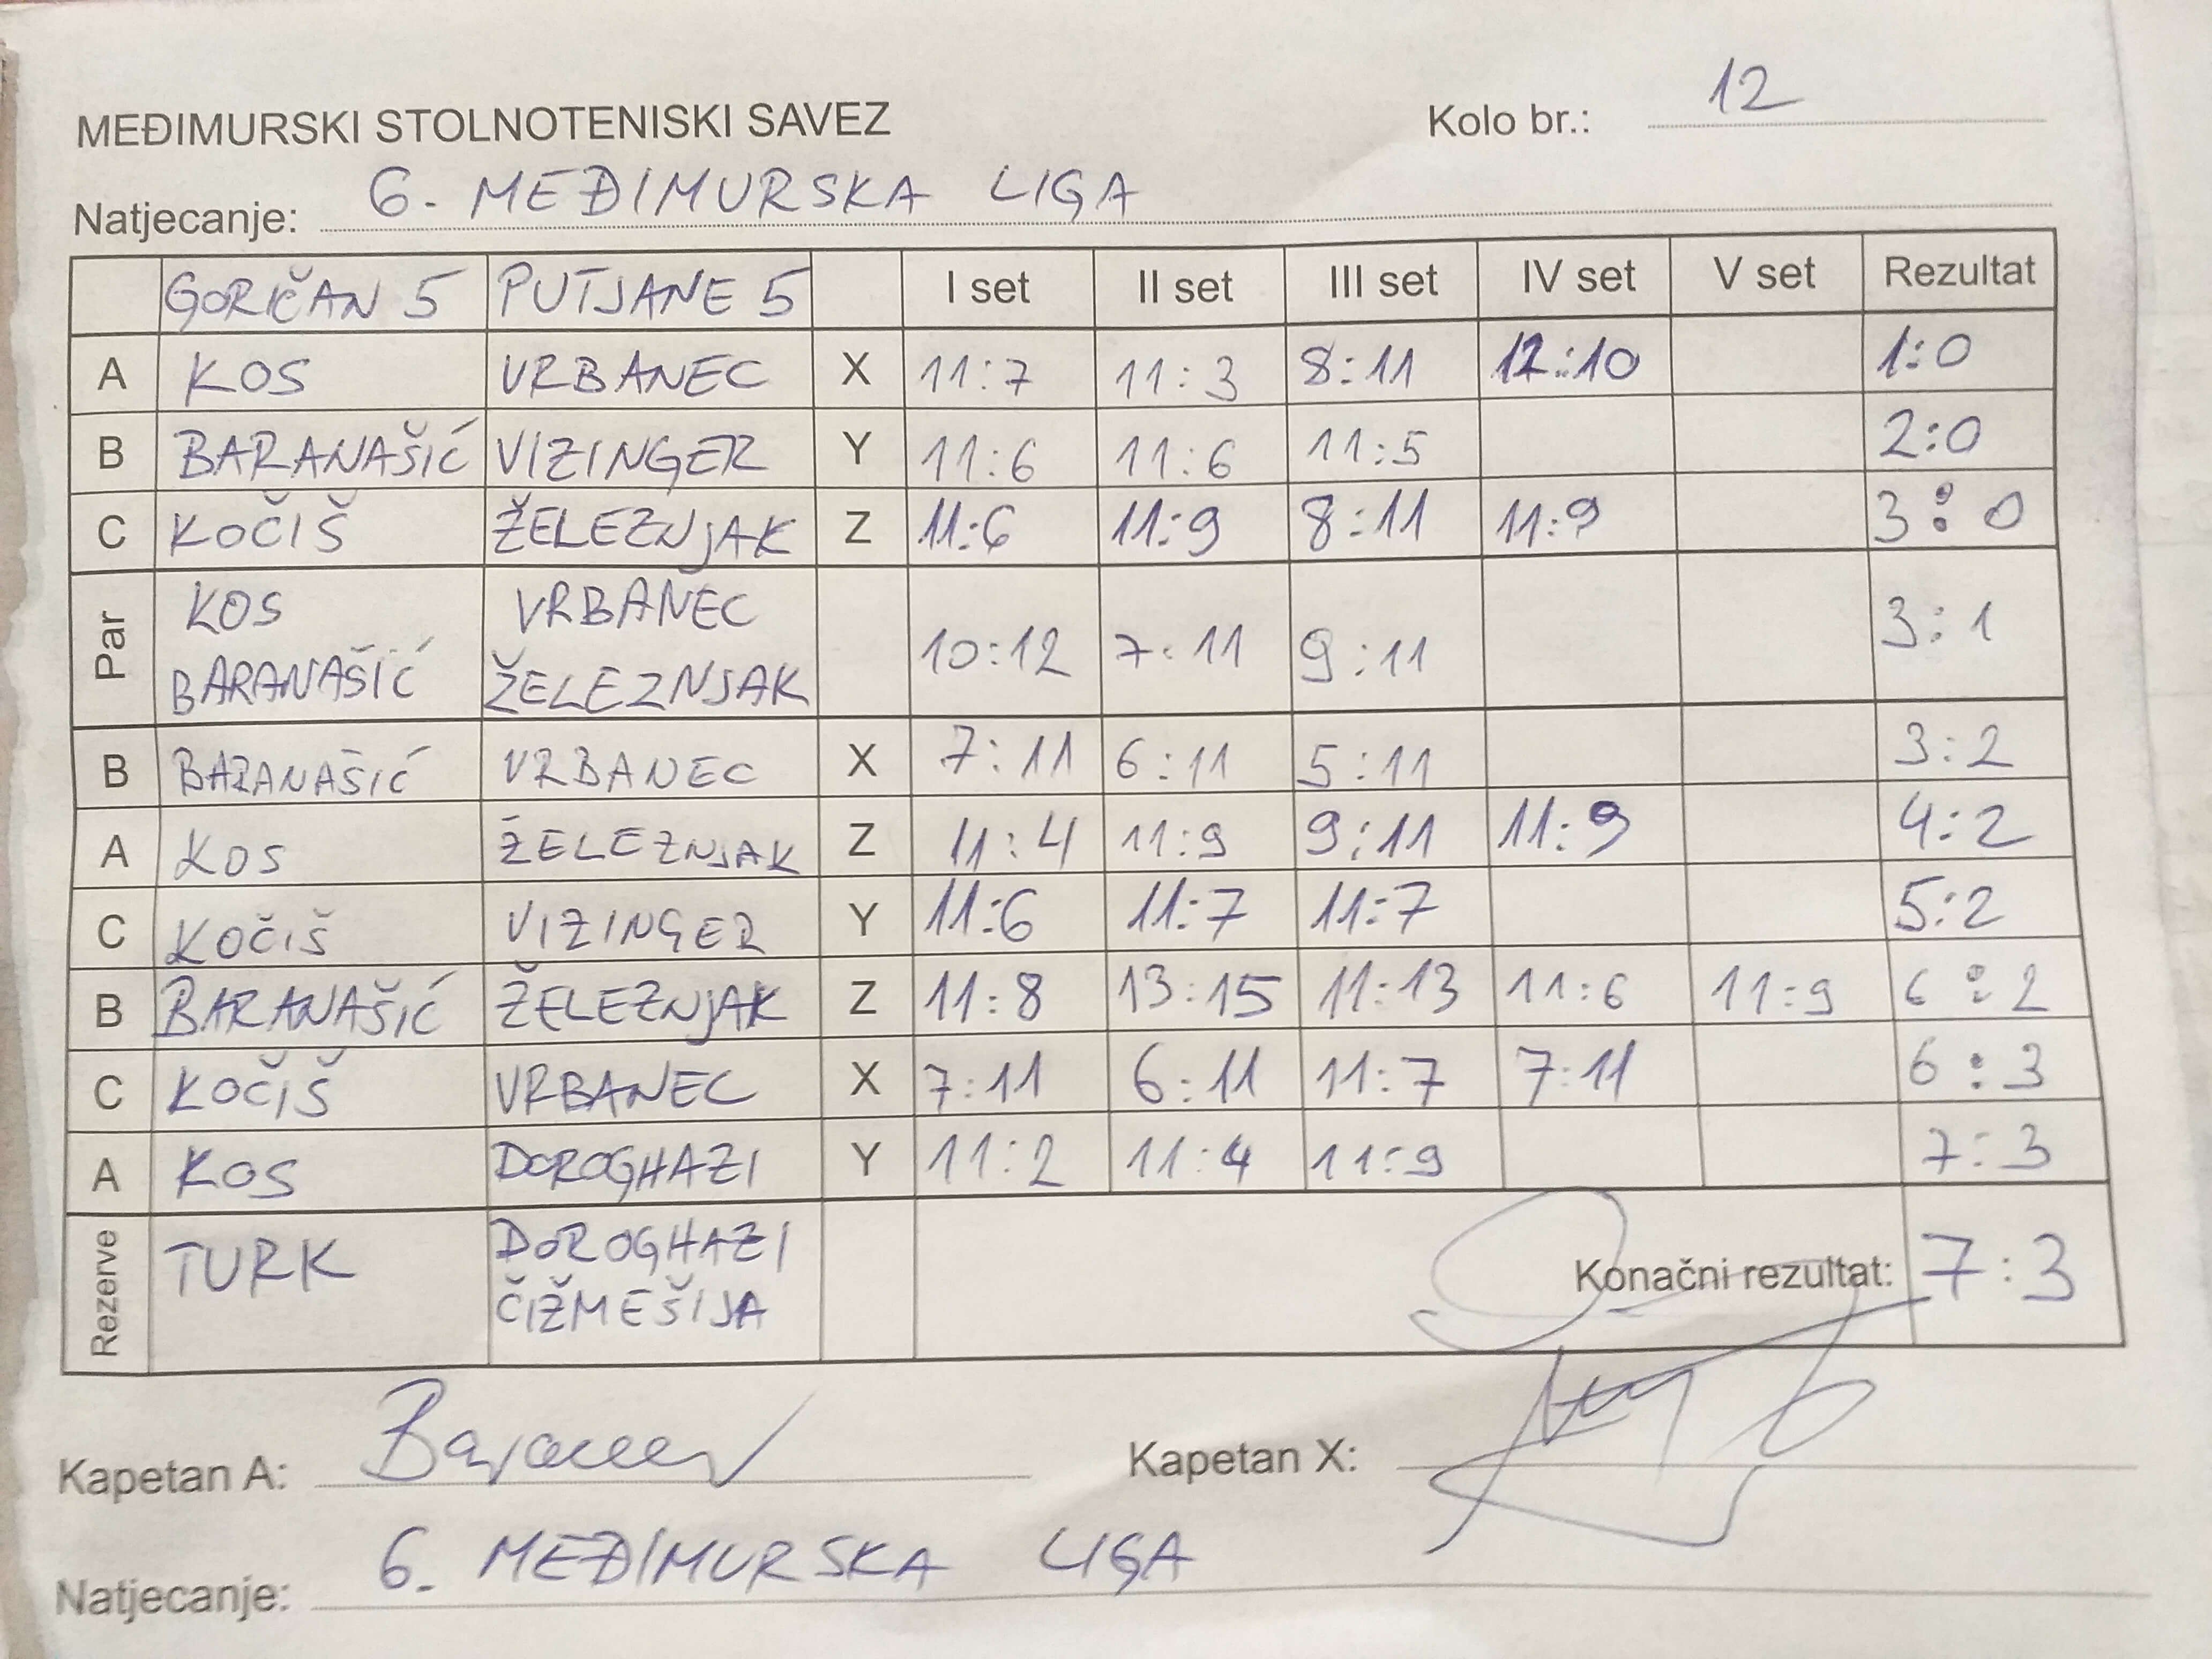 MEĐIMURSKI STOLNOTENISKI SAVEZ Kolo br.: 12
Natjecanje: 6. MEĐIMURSKA LIGA
GORIČAN 5 PUTJANE 5 I set II set III set IV set V set Rezultat
A KOS VRBANEC X 11:7 11:3 8:11 12:10 1:0
B BARANAŠIĆ VIZINGER Y 11:6 11:6 11:5 2:0
C KOČIŠ ŽELEZNJAK Z 11:6 11:9 8:11 11:9 3:0
Par KOS VRBANEC 10:12 7:11 9:11 3:1
BARANAŠIĆ ŽELEZNJAK
B BARANAŠIĆ VRBANEC X 7:11 6:11 5:11 3:2
A KOS ŽELEZNJAK Z 11:4 11:9 9:11 11:9 4:2
C KOČIŠ VIZINGER Y 11:6 11:7 11:7 5:2
B BARANAŠIĆ ŽELEZNJAK Z 11:8 13:15 11:13 11:6 11:9 6:2
C KOČIŠ VRBANEC X 7:11 6:11 11:7 7:11 6:3
A KOS DOROGHAZI Y 11:2 11:4 11:9 7:3
Rezerve TURK DOROGHAZI Konačni rezultat: 7:3
ČIŽMEŠIJA
Kapetan A: Kapetan X:
Natjecanje: 6. MEĐIMURSKA LIGA